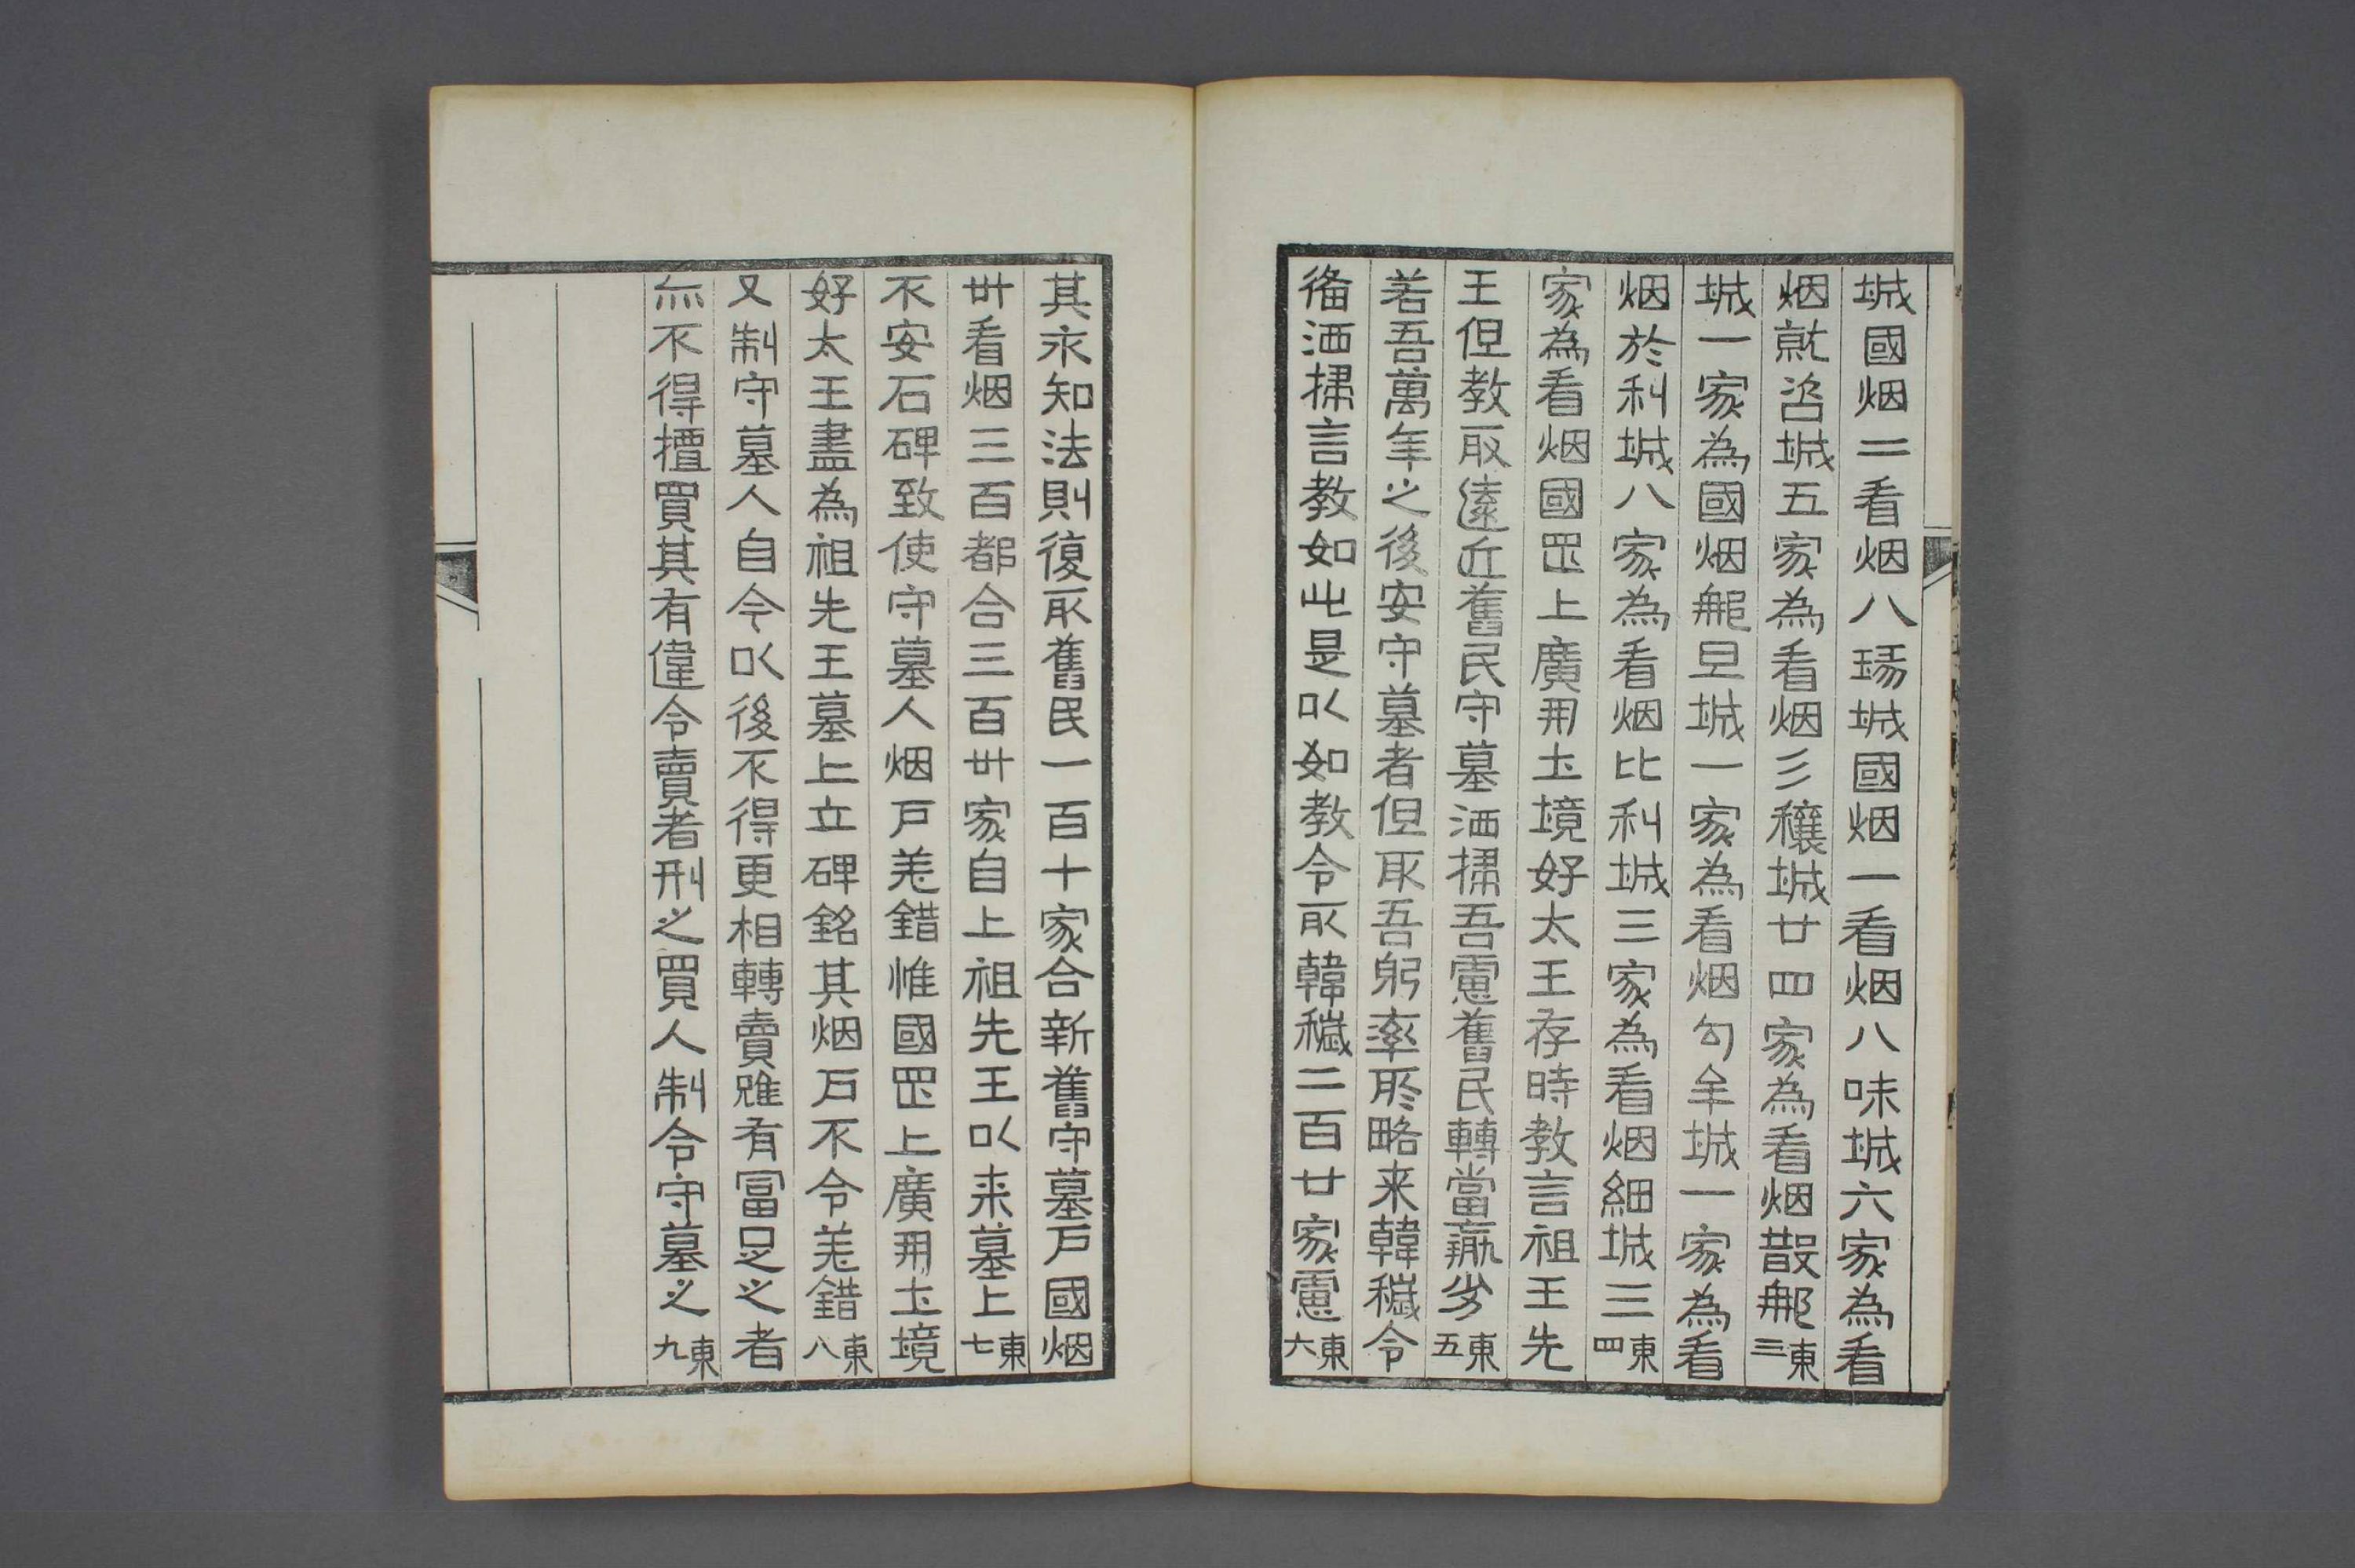 城國烟二看烟八瑒城國烟一看烟八味城六家為看
烟就咨城五家為看烟彡穰城廿四家為看烟散那東三
城一家為國烟那旦城一家為看烟勾牟城一家為看
烟於利城八家為看烟比利城三家為看烟細城三東四
家為看烟國罡上廣開土境好太王存時教言祖王先
王但教取遠近舊民守墓洒掃吾慮舊民轉當羸劣東五
若吾萬年之後安守墓者但取吾躬率所略来韓穢令
俻洒掃言教如此是以如教令取韓穢二百廿家慮東六
其永知法則復取舊民一百十家合新舊守墓戶國烟
卅看烟三百都合三百卅家自上祖先王以来墓上東七
不安石碑致使守墓人烟戶羌錯惟國罡上廣開土境
好太王盡為祖先王墓上立碑銘其烟戶不令羌錯東八
又制守墓人自今以後不得更相轉賣雖有冨足之者
亦不得擅買其有違令賣者刑之買人制令守墓之東九